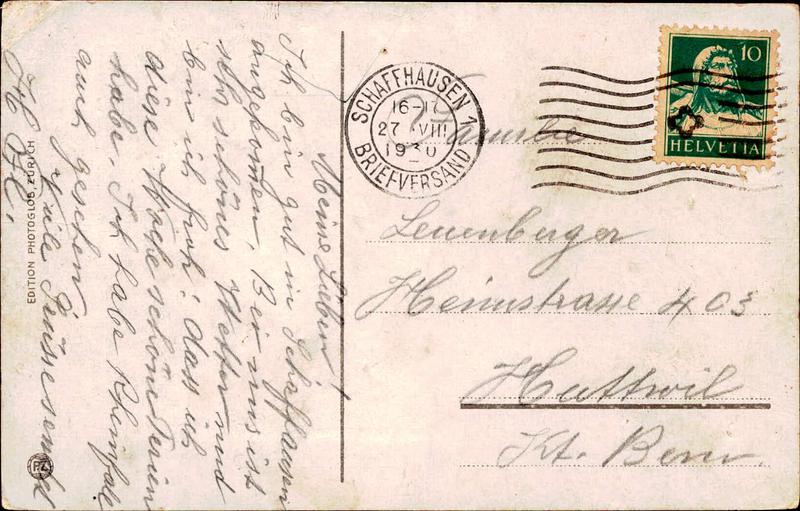 Meine Lieben!
Ich bin gut in Schaffhausen
angekommen. Bei uns ist
sehr schönes Wetter und
bin ich froh, dass ich
diese Woche schöne Ferien
habe. Ich habe Rheinfall
auch gesehen.
Viele Grüsse sendet
SCHAFFHAUSEN 1
16-17
27 VIII
1930
BRIEFVERSAND
10
HELVETIA
Familie
Leuenberger
Heimstrasse 403
Huttwil
Kt. Bern.
EDITION PHOTOGLOB, ZÜRICH
PZ